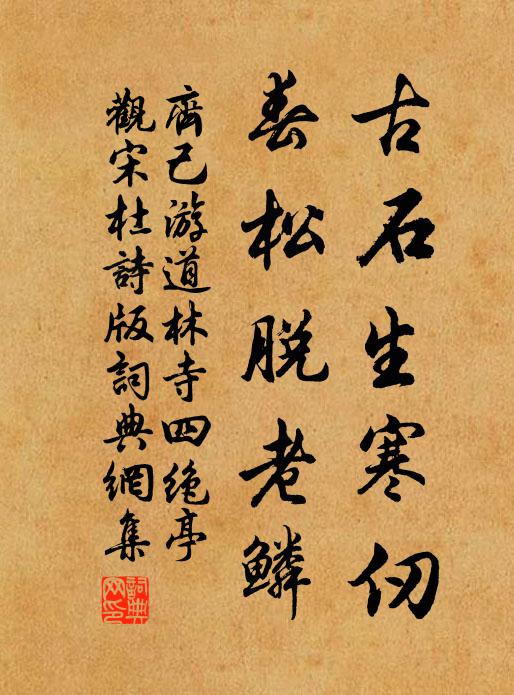 古石生寒仞
春松脱老鳞
齊己游道林寺四绝亭
觀宋杜詩版詞典網集
詞典
网印